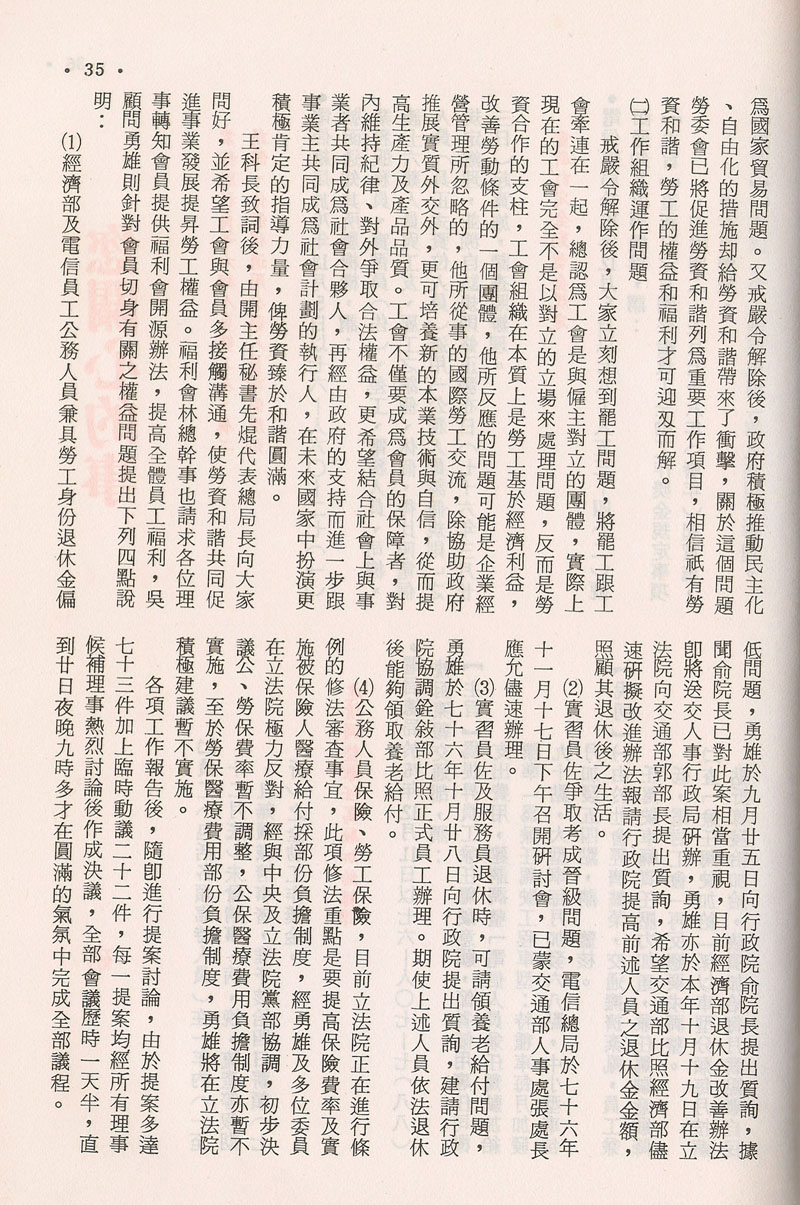 • 35 •
為國家貿易問題。又戒嚴令解除後，政府積極推動民主化
、自由化的措施却給勞資和諧帶來了衝擊，關於這個問題
勞委會已將促進勞資和諧列為重要工作項目，相信祇有勞
資和諧，勞工的權益和福利才可迎刄而解。
㈡工作組織運作問題
戒嚴令解除後，大家立刻想到罷工問題，將罷工跟工
會牽連在一起，總認為工會是與僱主對立的團體，實際上
現在的工會完全不是以對立的立場來處理問題，反而是勞
資合作的支柱，工會組織在本質上是勞工基於經濟利益，
改善勞動條件的一個團體，他所反應的問題可能是企業經
營管理所忽略的，他所從事的國際勞工交流，除協助政府
推展實質外交外，更可培養新的本業技術與自信，從而提
高生產力及產品品質。工會不僅要成為會員的保障者，對
內維持紀律、對外爭取合法權益，更希望結合社會上與事
業者共同成為社會合夥人，再經由政府的支持而進一步跟
事業主共同成為社會計劃的執行人，在未來國家中扮演更
積極肯定的指導力量，俾勞資臻於和諧圓滿。
王科長致詞後，由開主任秘書先焜代表總局長向大家
問好，並希望工會與會員多接觸溝通，使勞資和諧共同促
進事業發展提昇勞工權益。福利會林總幹事也請求各位理
事轉知會員提供福利會開源辦法，提高全體員工福利，吳
顧問勇雄則針對會員切身有關之權益問題提出下列四點說
明：
⑴經濟部及電信員工公務人員兼具勞工身份退休金偏
低問題，勇雄於九月廿五日向行政院俞院長提出質詢，據
聞俞院長已對此案相當重視，目前經濟部退休金改善辦法
卽將送交人事行政局硏辦，勇雄亦於本年十月十九日在立
法院向交通部郭部長提出質詢，希望交通部比照經濟部儘
速硏擬改進辦法報請行政院提高前述人員之退休金金額，
照顧其退休後之生活。
⑵實習員佐爭取考成晉級問題，電信總局於七十六年
十一月十七日下午召開硏討會，已蒙交通部人事處張處長
應允儘速辦理。
⑶實習員佐及服務員退休時，可請領養老給付問題，
勇雄於七十六年十月廿八日向行政院提出質詢，建請行政
院協調銓敘部比照正式員工辦理。期使上述人員依法退休
後能夠領取養老給付。
⑷公務人員保險、勞工保險，目前立法院正在進行條
例的修法審查事宜，此項修法重點是要提高保險費率及實
施被保險人醫療給付採部份負擔制度，經勇雄及多位委員
在立法院極力反對，經與中央及立法院黨部協調，初步決
議公、勞保費率暫不調整，公保醫療費用負擔制度亦暫不
實施，至於勞保醫療費用部份負擔制度，勇雄將在立法院
積極建議暫不實施。
各項工作報告後，隨卽進行提案討論，由於提案多達
七十三件加上臨時動議二十二件，每一提案均經所有理事
候補理事熱烈討論後作成決議，全部會議歷時一天半，直
到廿日夜晚九時多才在圓滿的氣氛中完成全部議程。